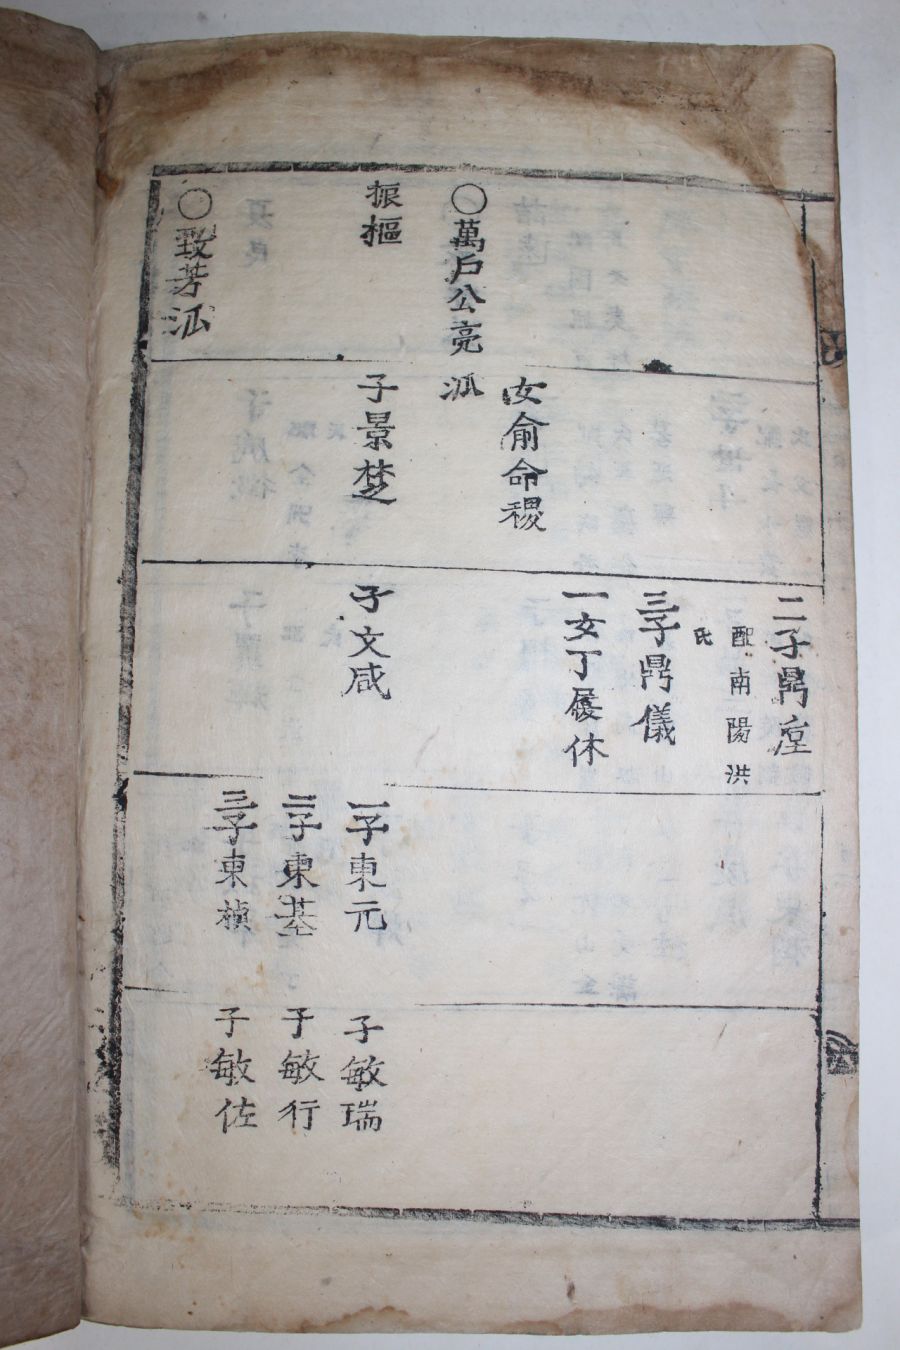 二子鼎
配南陽洪
氏
三子鼎儀
一女丁履休
女俞命稷
○萬戶公亮派
振樞
子景楚
子文咸
一子東元
子敏瑞
二子東基
子敏行
三子東楨
子敏佐
○致芳派